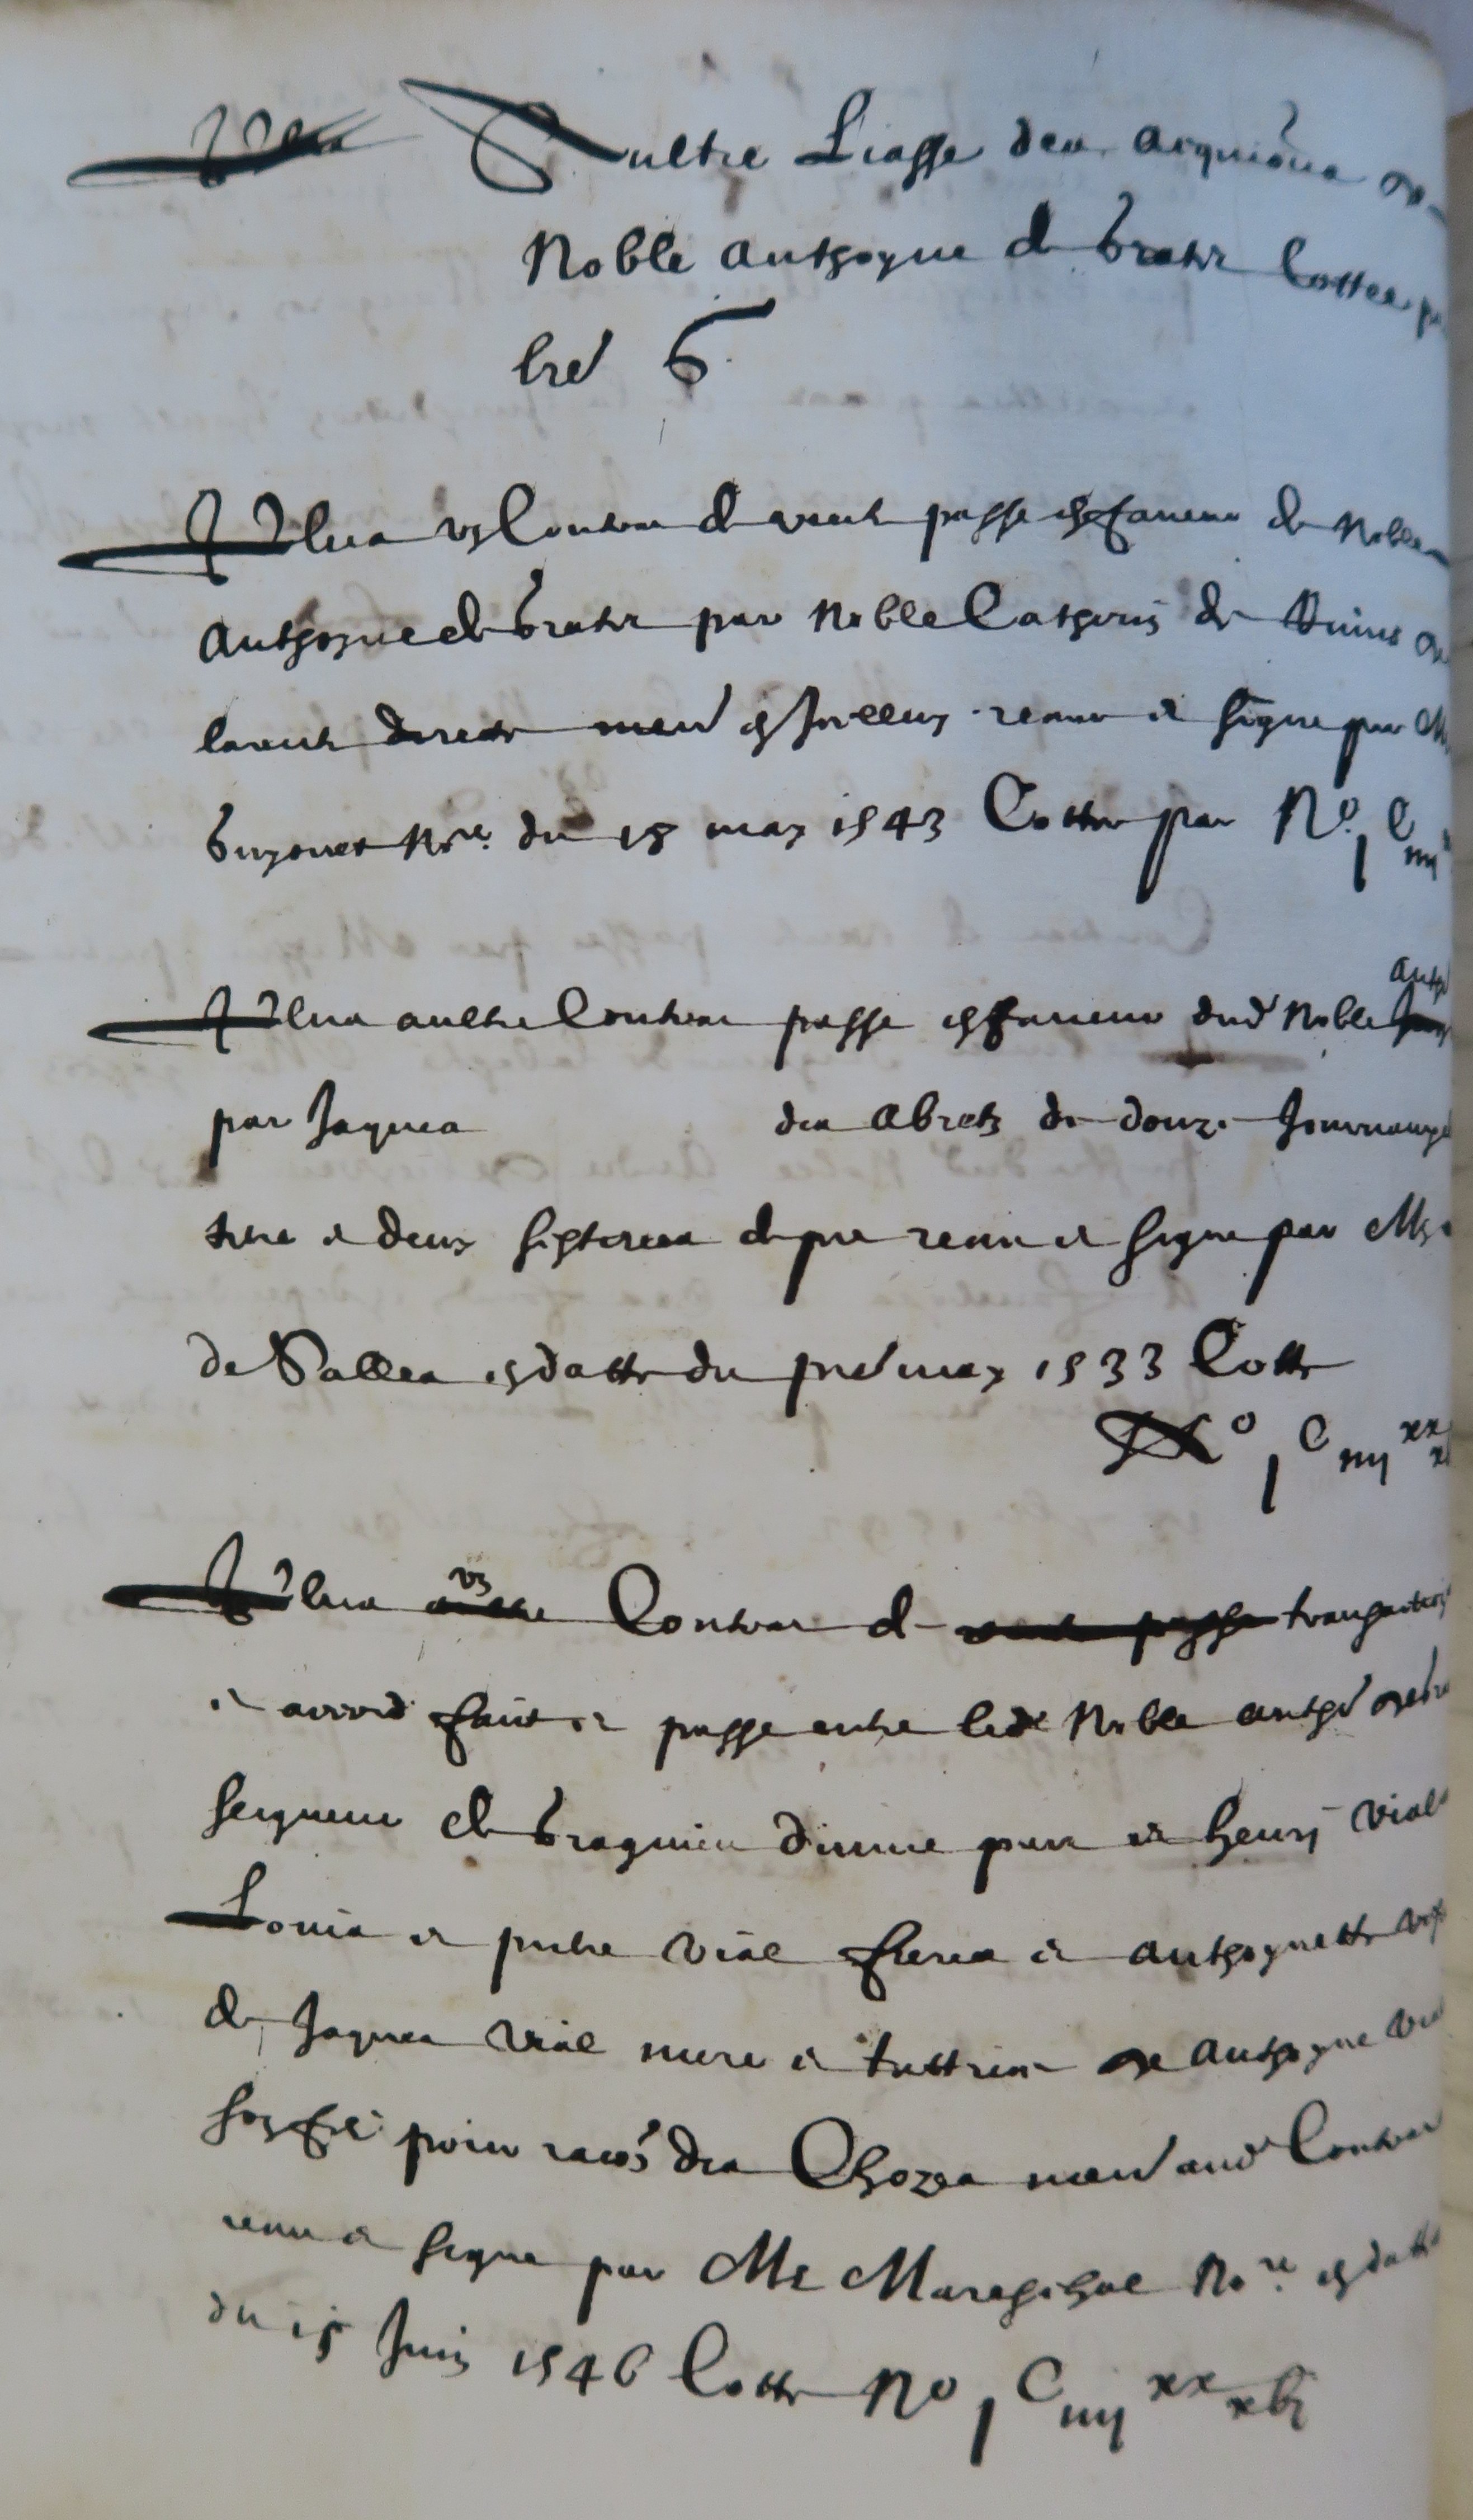 Plus Aultre Liasse des acquis de
Noble anthoyne de brotie Cottee p
lre 6
Plus un Contrat de vente passe en faveur de Noble
anthoyne de brotie par Noble Catherin de
directe men en Icelluy receu et signe par M
Not.re du 15 may 1543 Cotte par N.o i C iiij
Plus aultre Contrat passe en faveur dud Noble anth
par Jaques des abretz de douze Journaulx
terre et deux sisterees de pre receu et signe par Me
de Salles en datte du premier may 1533 Cotte
N.o i C iiij xx
Plus un Contrat de transaction
et accord faict et passe entre led Noble anthe de bro
seigneur de bragnieu d'une part et henry vial
Louis et pierre vial freres et anthoynette
de Jaques vial mere et tuttrice de anthoyne vial
son filz pour raison des Chozes men aud Contrat
receu et signe par Me Mareschal No.re en datte
du 15 Juin 1546 Cotte No i C iiij xx xvj